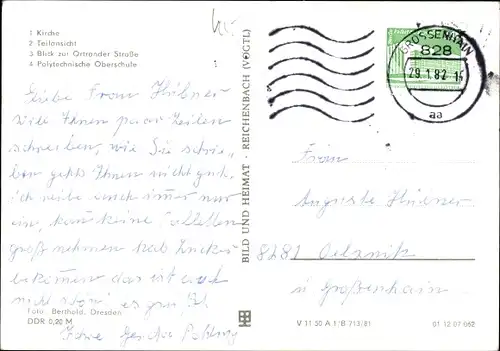 1 Kirche
2 Teilansicht
3 Blick zur Ortrander Straße
4 Polytechnische Oberschule
Liebe Frau Hübner
will Ihnen paar Zeilen
schreiben, wie Sie schrie-
ben gehts Ihnen nicht gut.
ich reibe auch immer nur
ein, kann keine Tabletten
groß nehmen hab Zucker
bekommen das ist auch
nicht schön es grüßt
Ihre
Foto: Berthold, Dresden
DDR 0,20 M
BILD UND HEIMAT · REICHENBACH (VOGTL)
GROSSENHAIN
828
29.1.82
aa
Frau
Auguste Hübner
8281 Oelsnitz
ü Großenhain
V 11 50 A 1/B 713/81
01 12 07 062